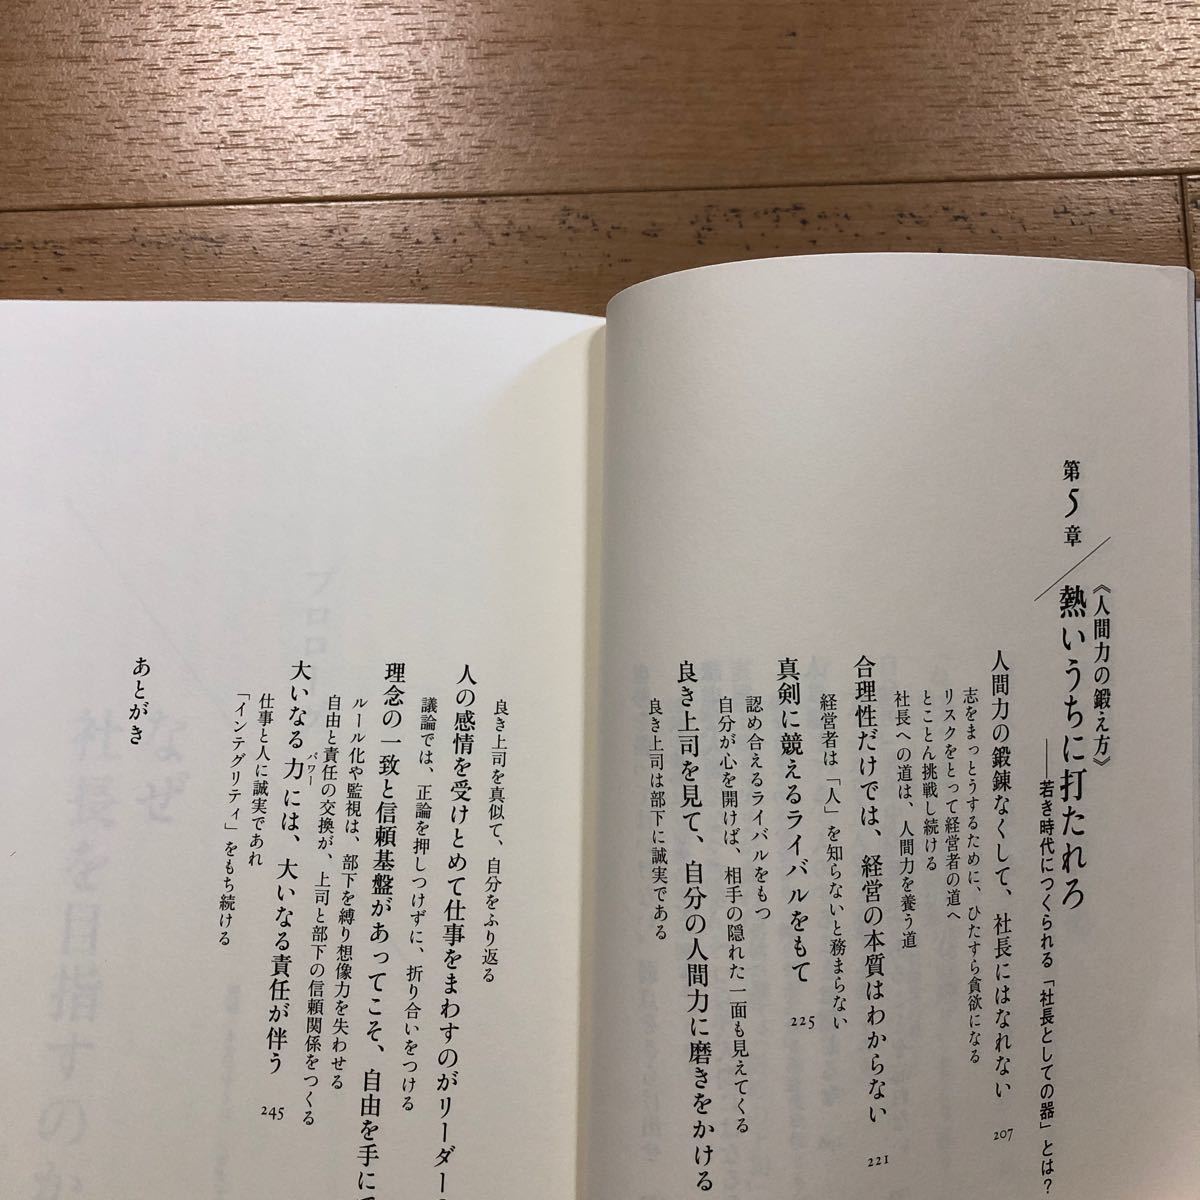 第5章
《人間力の鍛え方》
熱いうちに打たれろ
――若き時代につくられる「社長としての器」とは?
人間力の鍛錬なくして、社長にはなれない 207
志をまっとうするために、ひたすら貪欲になる
リスクをとって経営者の道へ
とことん挑戦し続ける
社長への道は、人間力を養う道
合理性だけでは、経営の本質はわからない 221
経営者は「人」を知らないと務まらない
真剣に競えるライバルをもて 225
認め合えるライバルをもつ
自分が心を開けば、相手の隠れた一面も見えてくる
良き上司を見て、自分の人間力に磨きをかける
良き上司は部下に誠実である
良き上司を真似て、自分をふり返る
人の感情を受けとめて仕事をまわすのがリーダー
議論では、正論を押しつけずに、折り合いをつける
理念の一致と信頼基盤があってこそ、自由を手に
ルール化や監視は、部下を縛り想像力を失わせる
自由と責任の交換が、上司と部下の信頼関係をつくる
大いなる力には、大いなる責任が伴う 245
パワー
仕事と人に誠実であれ
「インテグリティ」をもち続ける
あとがき
プロローグ
なぜ
社長を目指すのか